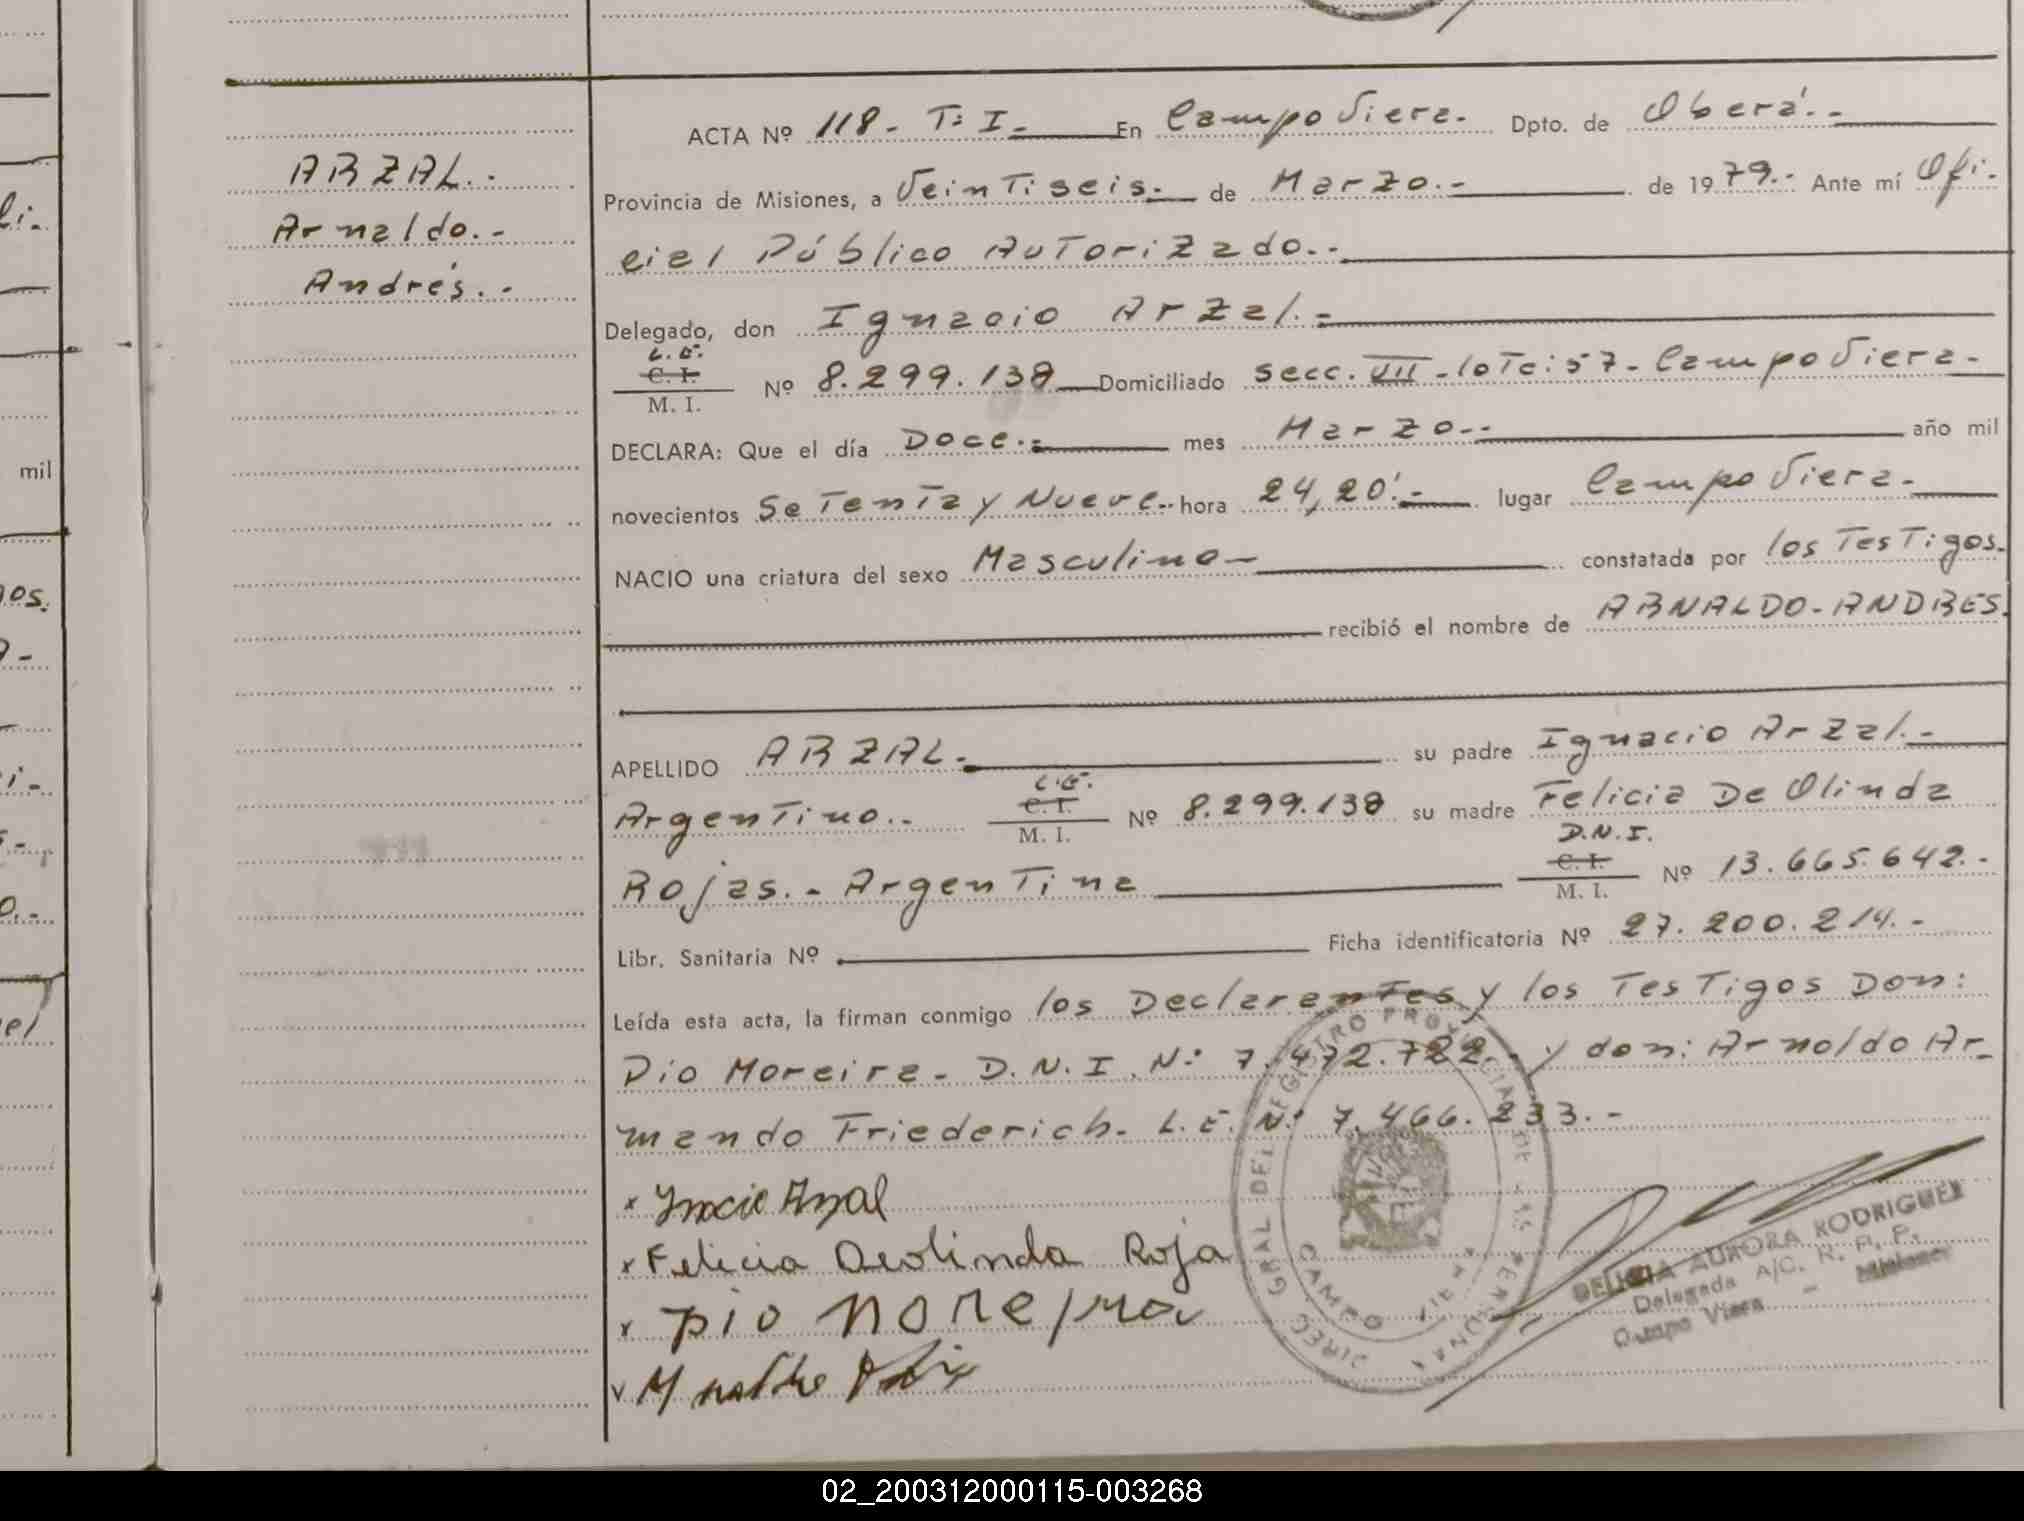 ARZAL.-
Arnaldo.-
Andrés.-
ACTA Nº 118.- T: I.- En Campo Viera.- Dpto. de Oberá.-
Provincia de Misiones, a Veintiseis.- de Marzo.- de 1979.- Ante mí Ofi-
cial Público Autorizado.-
Delegado, don Ignacio Arzal.-
L.E.
C. I.
M. I.
Nº 8.299.138 Domiciliado secc. VII - lote: 57 - Campo Viera-
DECLARA: Que el día Doce.- mes Marzo.- año mil
novecientos Setenta y Nueve.- hora 24,20'.- lugar Campo Viera.-
NACIO una criatura del sexo Masculino- constatada por los Testigos.
recibió el nombre de ARNALDO-ANDRES.
APELLIDO ARZAL.- su padre Ignacio Arzal.-
Argentino.- L.E. C. I. M. I. Nº 8.299.138 su madre Felicia De Olinda
Rojas.- Argentina D.N.I. C. I. M. I. Nº 13.665.642.-
Libr. Sanitaria Nº Ficha identificatoria Nº 27.200.214.-
Leída esta acta, la firman conmigo los Declarantes y los Testigos Don:
Pio Moreira- D.N.I. N: 7.472.722.- y don: Arnoldo Ar-
mando Friederich- L.E. N: 7.466.233.-
x Ynacio Arzal
x Felicia Deolinda Roja
x pio moreira
DIREC. GRAL DEL REGISTRO PROVINCIAL DE LAS PERSONAS
CAMPO VIERA
DELICIA AURORA RODRIGUEZ
Delegada A/C. R. P. P.
Campo Viera - Misiones
mil
02_200312000115-003268